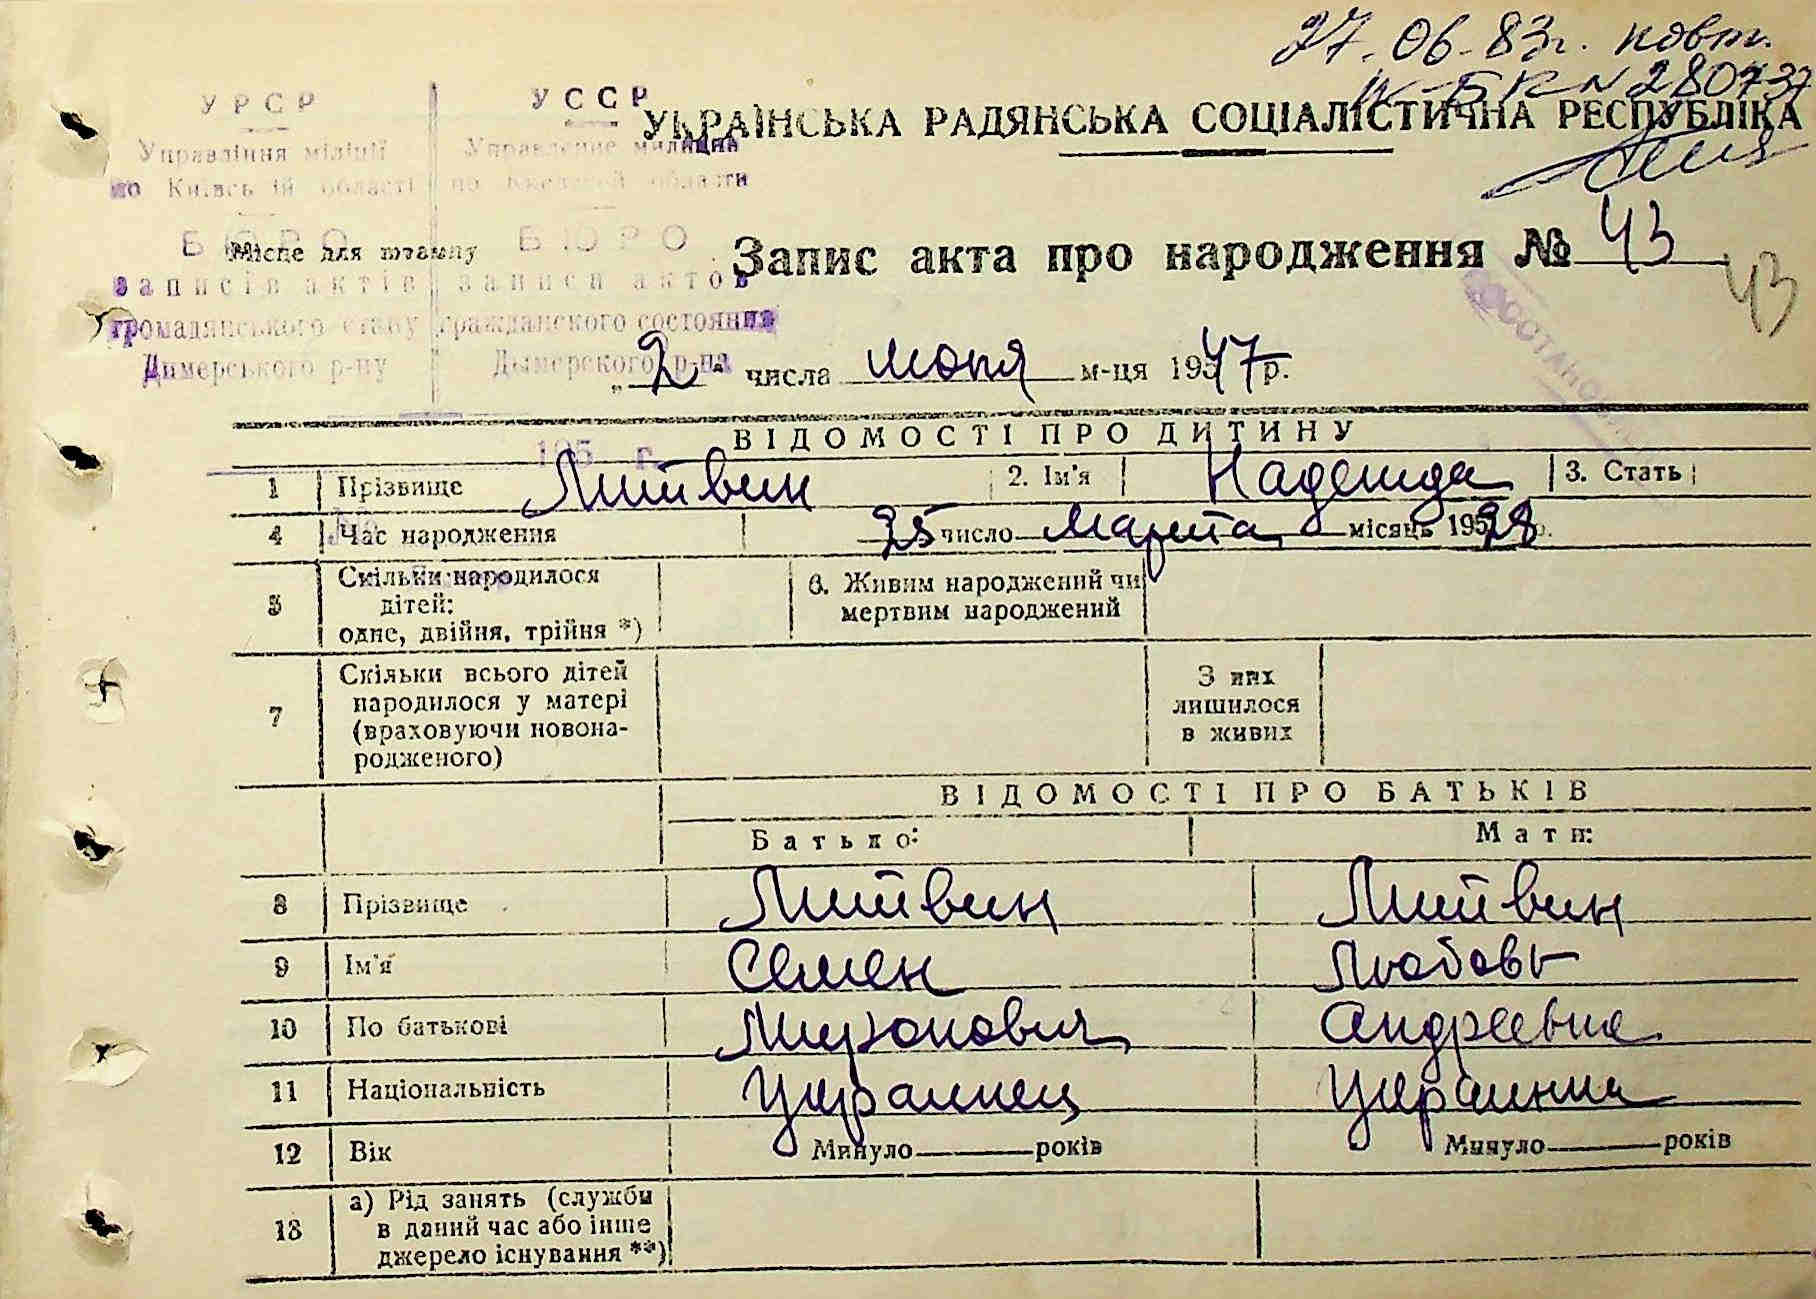 27.06-83г. повт.
IV-БК N 280737
УРСР
УССР
УКРАЇНСЬКА РАДЯНСЬКА СОЦІАЛІСТИЧНА РЕСПУБЛІКА
Управління міліції Управление милиции
по Київській області по Киевской области
БЮРО БЮРО
Місце для штампу
Запис акта про народження № 43
43
записів актів записи актов
громадянського стану гражданского состояния
Димерського р-ну Дымерского р-на
„2" числа июня м-ця 1947 р.
195 г.
ВІДОМОСТІ ПРО ДИТИНУ
1 Прізвище Литвин 2. Ім'я Надежда 3. Стать
4 Час народження 25 число марта місяць 1928 р.
5 Скільки народилося дітей: одне, двійня, трійня *)
6. Живим народжений чи мертвим народжений
7 Скільки всього дітей народилося у матері (враховуючи новонародженого)
З них лишилося в живих
ВІДОМОСТІ ПРО БАТЬКІВ
Батько: Мати:
8 Прізвище Литвин Литвин
9 Ім'я Семен Любовь
10 По батькові Миронович Андреевна
11 Національність Украинец Украинка
12 Вік Минуло років Минуло років
13 а) Рід занять (служби в даний час або інше джерело існування **)